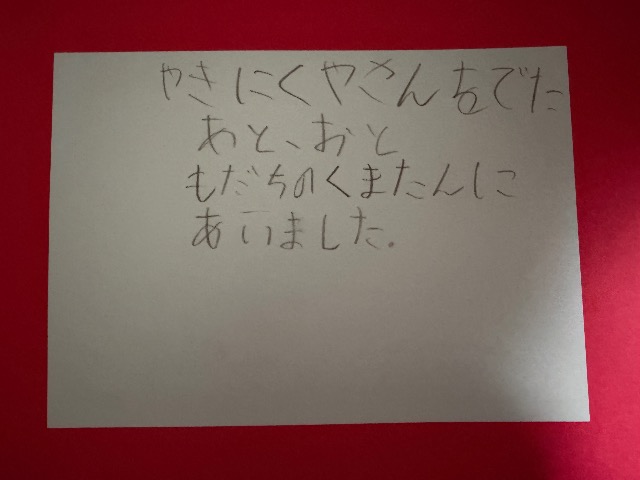 やきにくやさんをでた
あと、おと
もだちのくまたんに
あいました。